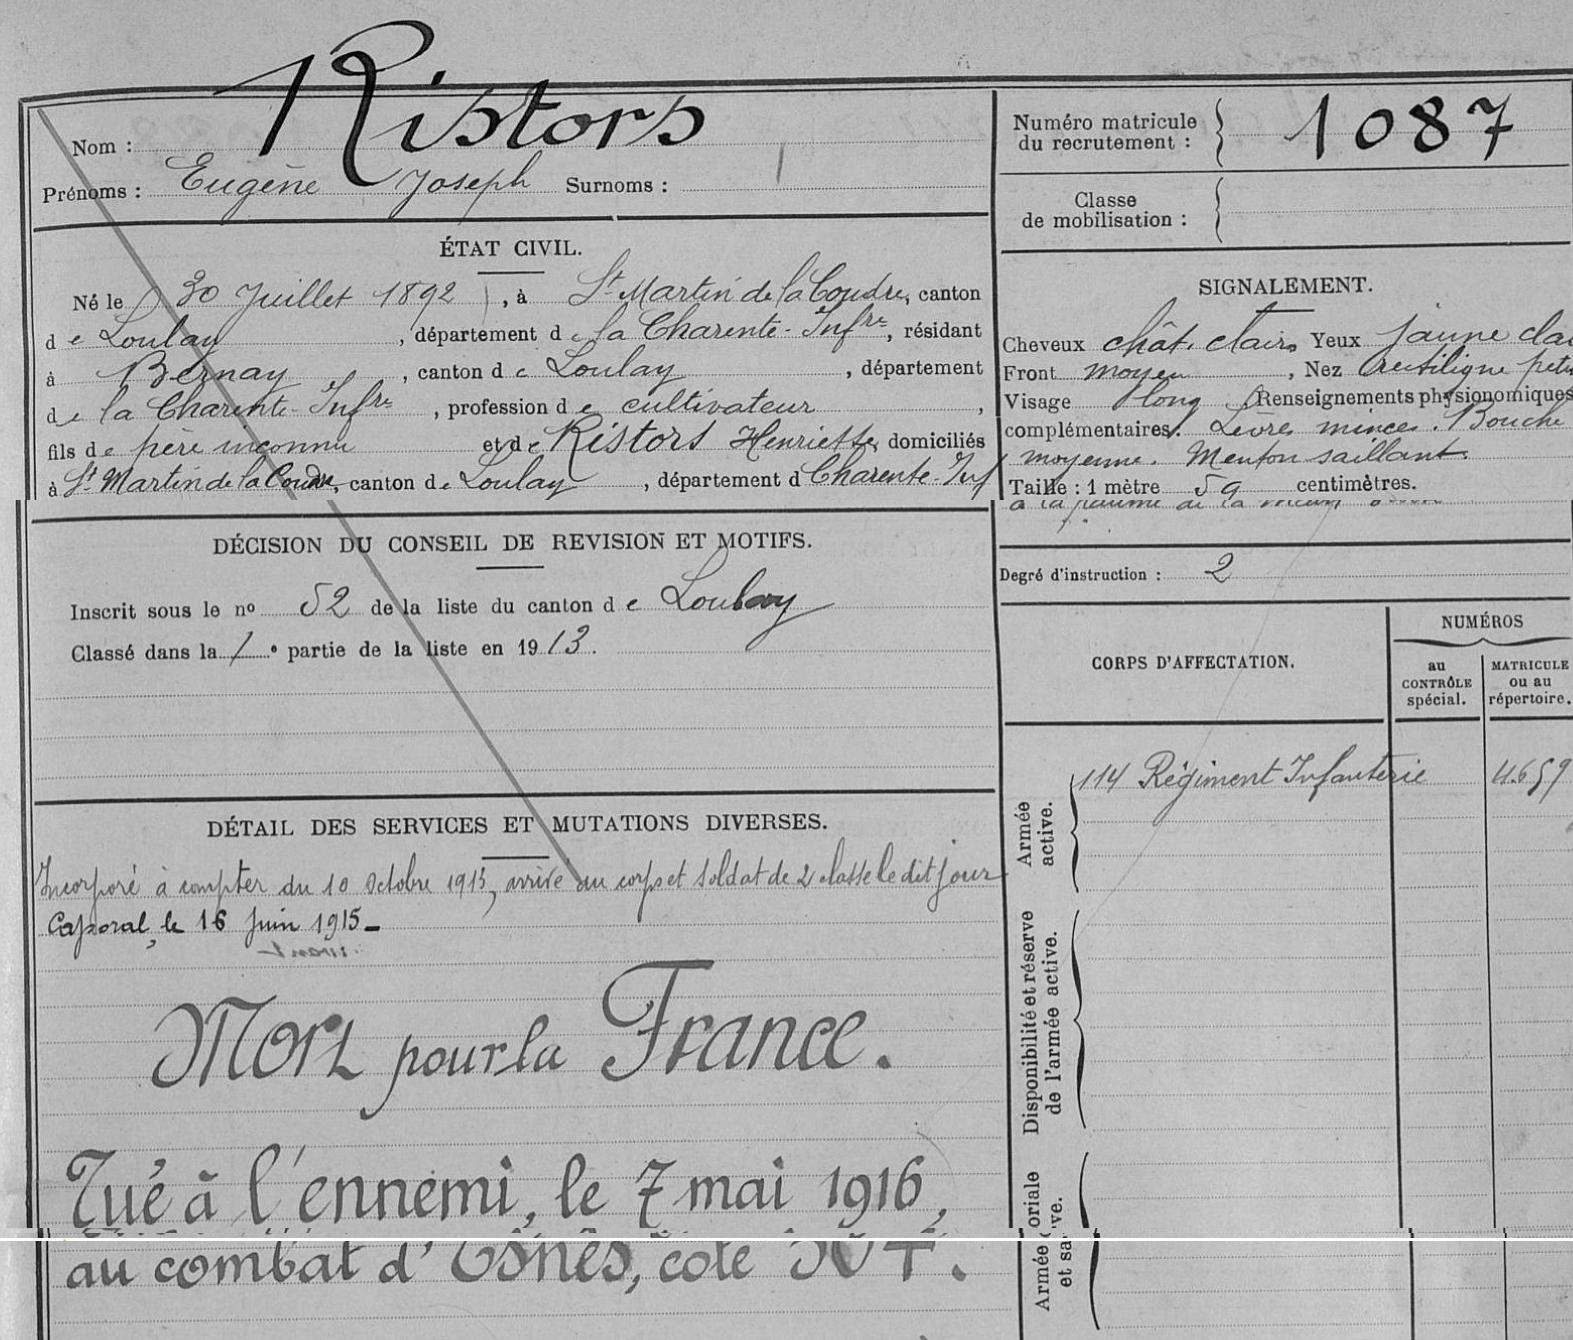 Nom : Ristors
Prénoms : Eugène Joseph Surnoms :
ÉTAT CIVIL.
Né le 30 Juillet 1892, à St Martin de la Coudre, canton
de Loulay, département de la Charente-Infre, résidant
à Bernay, canton de Loulay, département
de la Charente-Infre, profession de cultivateur,
fils de père inconnu et de Ristors Henriette, domiciliés
à St Martin de la Coudre, canton de Loulay, département d Charente-Inf
DÉCISION DU CONSEIL DE REVISION ET MOTIFS.
Inscrit sous le no 52 de la liste du canton de Loulay
Classé dans la 1e partie de la liste en 1913.
DÉTAIL DES SERVICES ET MUTATIONS DIVERSES.
Incorporé à compter du 10 Octobre 1913, arrivé au corps et soldat de 2 classe le dit jour
Caporal, le 16 Juin 1915-
Mort pour la France.
Tué à l'ennemi, le 7 mai 1916,
au combat d'Esnes, cote 304.
Numéro matricule
du recrutement : 1087
Classe
de mobilisation :
SIGNALEMENT.
Cheveux chât. clairs Yeux jaune clai
Front moyen, Nez rectiligne peti
Visage long Renseignements physionomiques
complémentaires. Lèvres minces. Bouche
moyenne. Menton saillant.
Taille : 1 mètre 59 centimètres.
Degré d'instruction : 2
CORPS D'AFFECTATION.
NUMÉROS
au
CONTRÔLE
spécial.
MATRICULE
ou au
répertoire.
Armée
active.
114 Régiment Infanterie 4659
Disponibilité et réserve
de l'armée active.
Armée
oriale
et sa
ve.